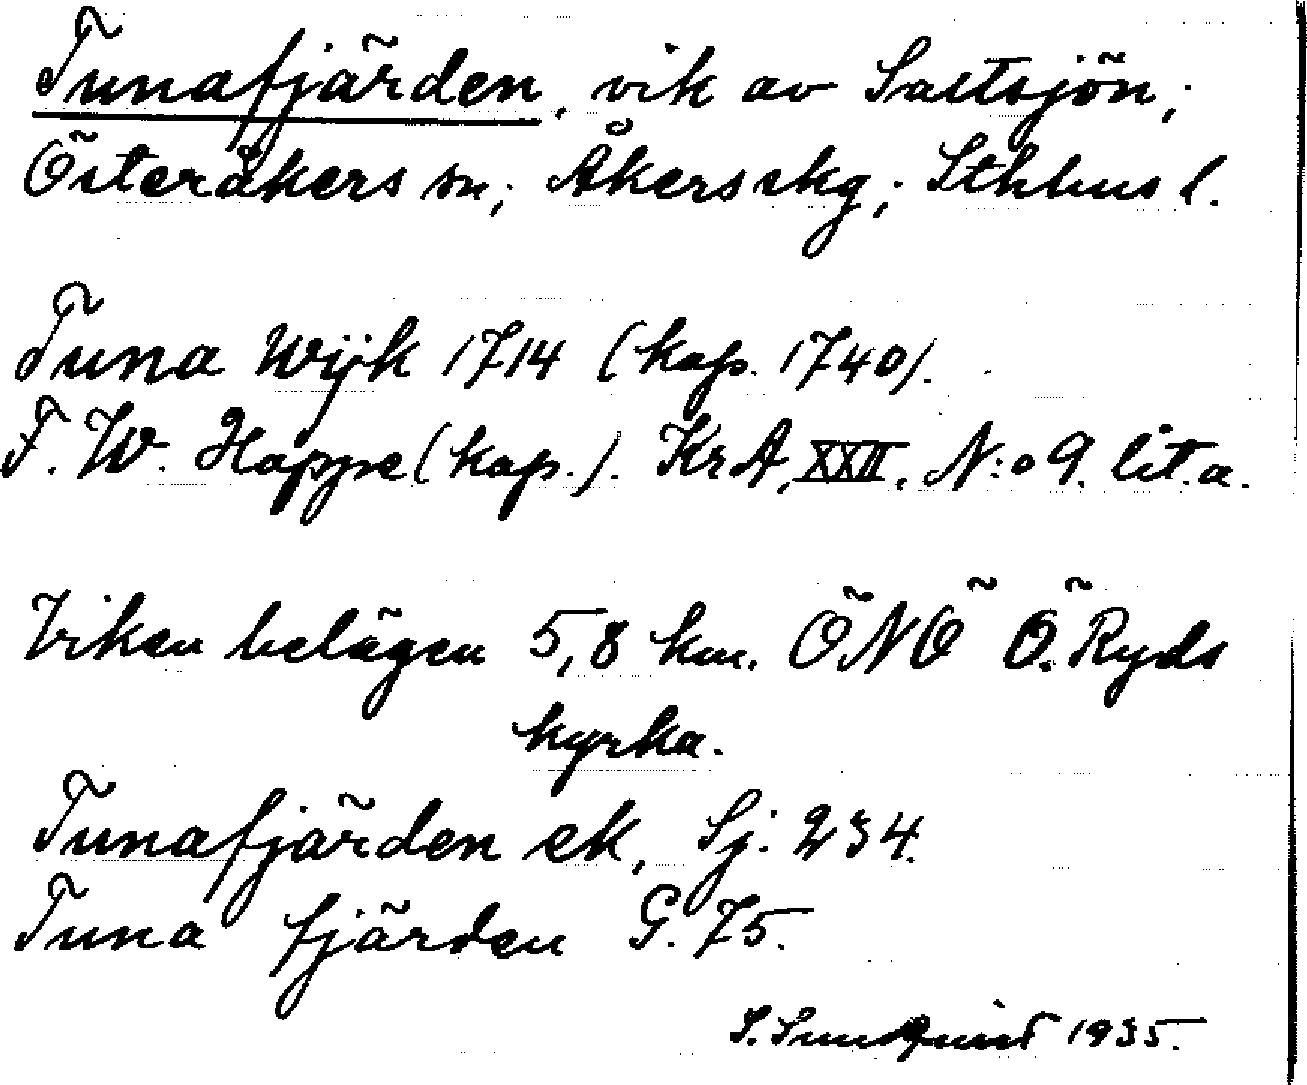 Tunafjärden, vik av Saltsjön;
Österåkers sn; Åkers skg; Sthlms l.
Tuna Wijk 1714 (kop. 1740).
F. W. Hoppe (kop.). KrA, XXII, N:o 9. lit. a.
Viken belägen 5,8 km. ÖNÖ Ö. Ryds
kyrka.
Tunafjärden ek, Sj. 234.
Tuna fjärden G. 75.
S. 1935.